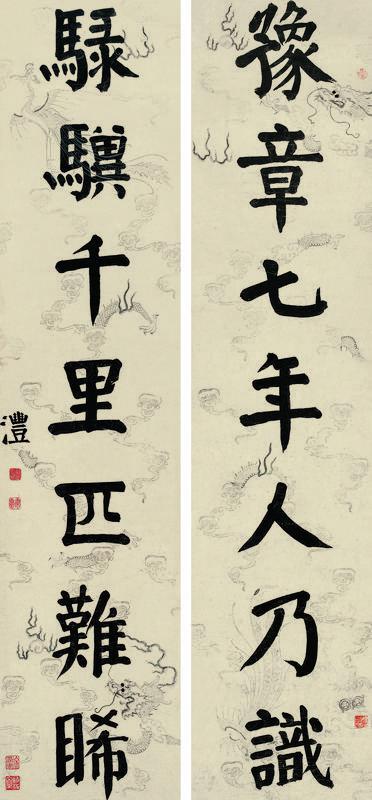 豫章七年人乃識
騄驥千里匹難睎
澧